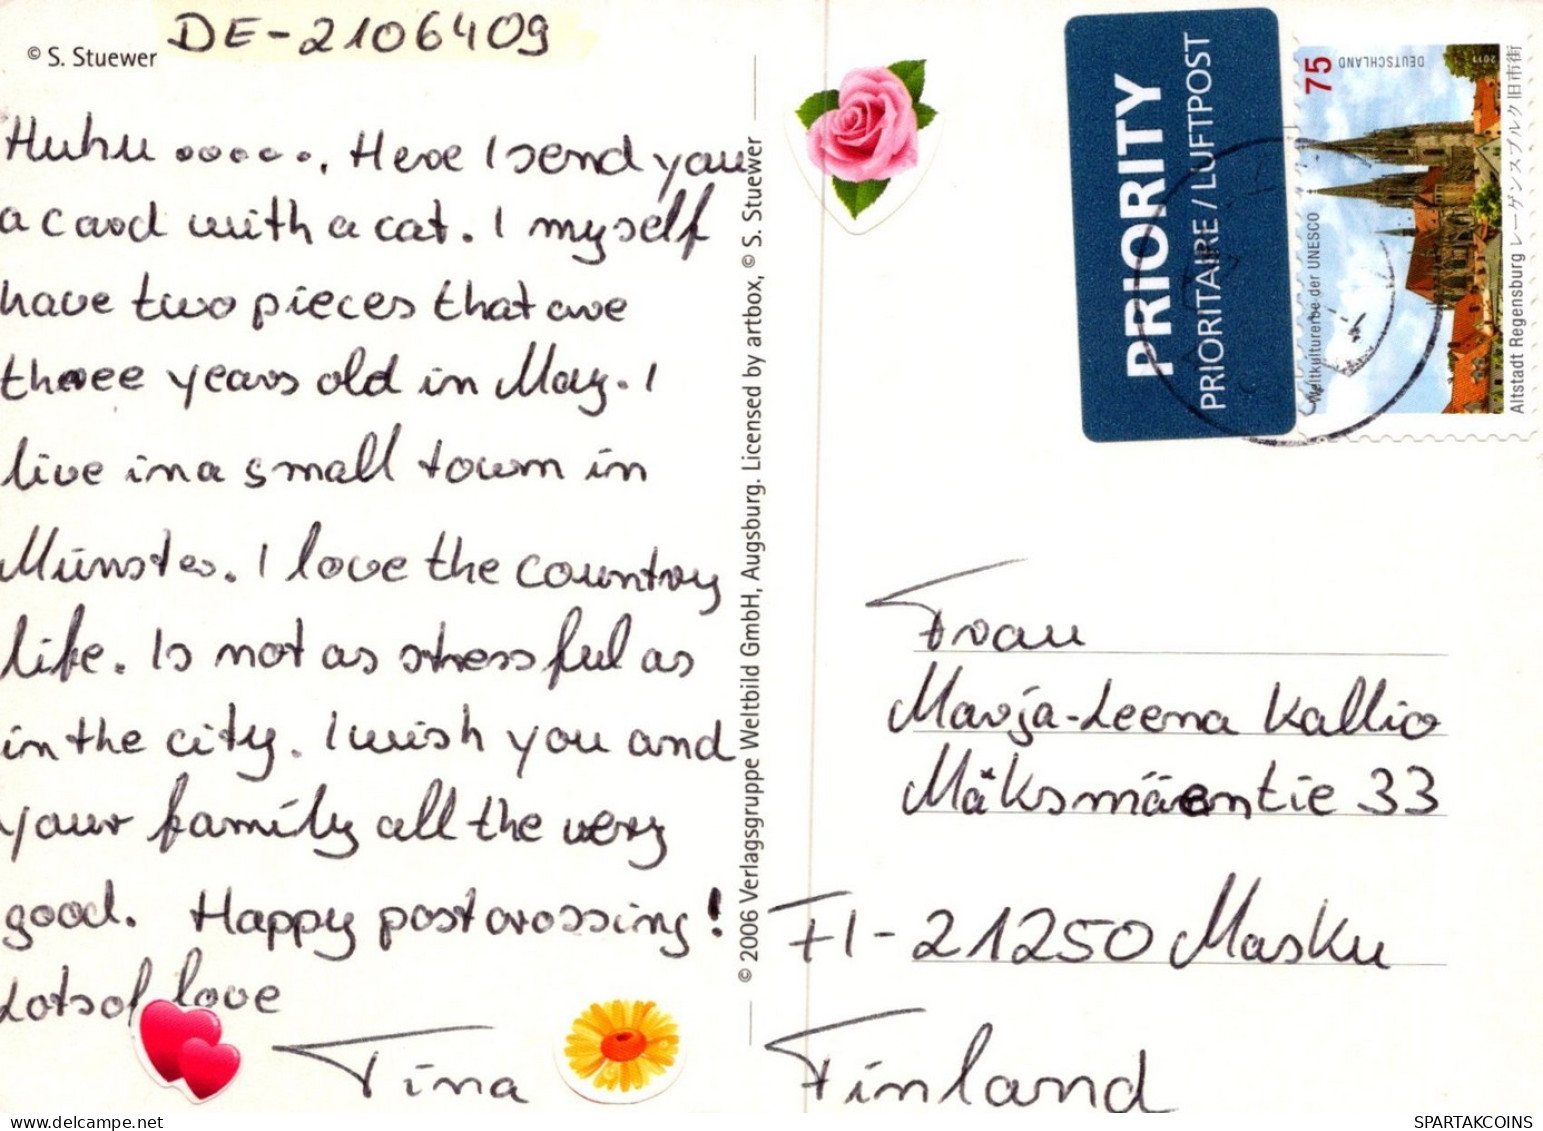 DE-2106409
© S. Stuewer
Huhu ......, Here I send you
a card with a cat. I myself
have two pieces that are
three years old in May. I
live in a small town in
Münster. I love the country
life. Is not as stressful as
in the city. I wish you and
your family all the very
good. Happy postcrossing!
Lots of love
Tina
© 2006 Verlagsgruppe Weltbild GmbH, Augsburg. Licensed by artbox, © S. Stuewer
PRIORITY
PRIORITAIRE / LUFTPOST
75
DEUTSCHLAND
2011
Weltkulturerbe der UNESCO
Altstadt Regensburg レーゲンスブルク旧市街
Frau
Marja-Leena Kallio
Mäksmäentie 33
FI-21250 Masku
Finland
SPARTAKCOINS